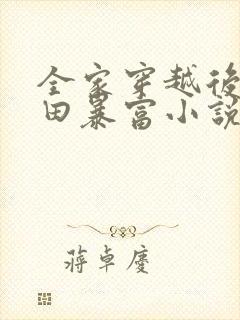 全家穿越後
田暴富小說
蔣卓慶